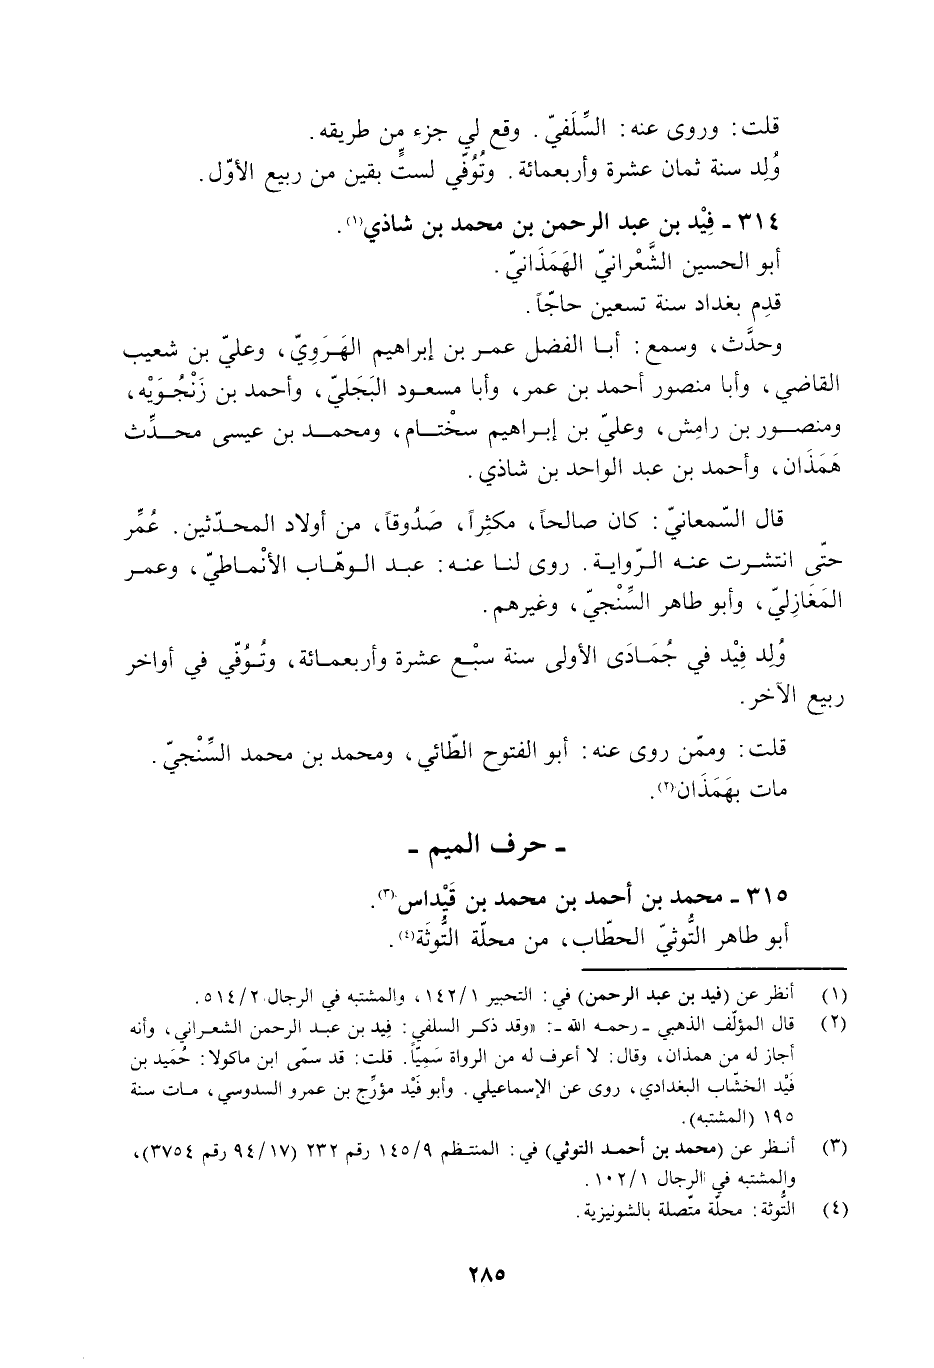 قلت: وروى عنه: السِّلَفيّ. وقع لي جزء من طريقه.
وُلِد سنة ثمان عشرة وأربعمائة. وتُوُفّي لستٍّ بقين من ربيع الأوّل.
٣١٤ ـ فِيْد بن عبد الرحمن بن محمد بن شاذي(١).
أبو الحسين الشَّعْرانيّ الهَمَذَانيّ.
قدِم بغداد سنة تسعين حاجّاً.
وحدَّث، وسمع: أبا الفضل عمر بن إبراهيم الهَرَوِيّ، وعليّ بن شعيب
القاضي، وأبا منصور أحمد بن عمر، وأبا مسعود البَجَليّ، وأحمد بن زَنْجُوَيْه،
ومنصور بن رامِش، وعليّ بن إبراهيم سخْتام، ومحمد بن عيسى محدّث
هَمَذَان، وأحمد بن عبد الواحد بن شاذي.
قال السّمعانيّ: كان صالحاً، مكثِراً، صَدُوقاً، من أولاد المحدّثين. عُمِّر
حتّى انتشرت عنه الرّواية. روى لنا عنه: عبد الوهّاب الأنْماطيّ، وعمر
المَغَازِليّ، وأبو طاهر السِّنْجيّ، وغيرهم.
وُلِد فِيْد في جُمَادَى الأولى سنة سبْع عشرة وأربعمائة، وتُوُفّي في أواخر
ربيع الآخر.
قلت: وممّن روى عنه: أبو الفتوح الطّائي، ومحمد بن محمد السِّنْجيّ.
مات بهَمَذَان(٢).
ـ حرف الميم ـ
٣١٥ ـ محمد بن أحمد بن محمد بن قَيْداس(٣).
أبو طاهر التُّوثيّ الحطّاب، من محلّة التُّوثَة(٤).
(١) أنظر عن (فيد بن عبد الرحمن) في: التحبير ١/١٤٢، والمشتبه في الرجال ٢/٥١٤.
(٢) قال المؤلّف الذهبي ـ رحمه الله ـ: «وقد ذكر السلفي: فِيد بن عبد الرحمن الشعراني، وأنه
أجاز له من همذان، وقال: لا أعرف له من الرواة سَمِيّاً. قلت: قد سمّى ابن ماكولا: حُميد بن
فَيْد الخشّاب البغدادي، روى عن الإسماعيلي. وأبو فَيْد مؤرِّج بن عمرو السدوسي، مات سنة
١٩٥ (المشتبه).
(٣) أنظر عن (محمد بن أحمد التوثي) في: المنتظم ٩/١٤٥ رقم ٢٣٢ (١٧/٩٤ رقم ٣٧٥٤)،
والمشتبه في الرجال ١/١٠٢.
(٤) التُّوثة: محلّة متّصلة بالشونيزية.
٢٨٥